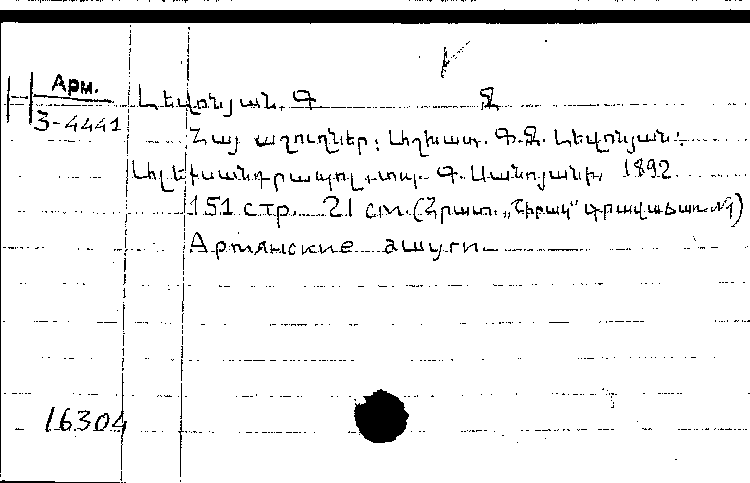 Арм.
3-4441
Լեվոնյան. Գ Ջ
Հայ աշուղներ: Աշխատ. Գ. Ջ. Լեվոնյան:
Ալեքսանդրապոլ, տպ. Գ. Սանոյանի, 1892
151 стр. 21 см. (Հրատ. „Շիրակ“ գրավաճառ.
Армянские ашуги
16304